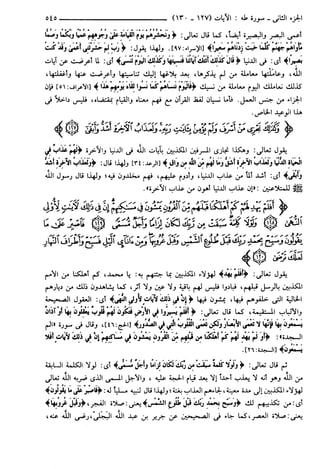 الجزء الثانى - سورة طه : الآيات (١٢٧ - ١٣٠)
٥٤٥
أعمى البصر والبصيرة أيضًا، كما قال تعالى: ﴿وَنَحْشُرُهُمْ يَوْمَ الْقِيَامَةِ عَلَىٰ وُجُوهِهِمْ عُمْيًا وَبُكْمًا وَصُمًّا
مَّأْوَاهُمْ جَهَنَّمُ كُلَّمَا خَبَتْ زِدْنَاهُمْ سَعِيرًا﴾ [الإسراء: ٩٧]. ولهذا يقول: ﴿رَبِّ لِمَ حَشَرْتَنِي أَعْمَىٰ وَقَدْ كُنتُ
بَصِيرًا﴾ أى: فى الدنيا ﴿قَالَ كَذَٰلِكَ أَتَتْكَ آيَاتُنَا فَنَسِيتَهَا وَكَذَٰلِكَ الْيَوْمَ تُنسَىٰ﴾ أى: لما أعرضت عن آيات
الله، وعاملتها معاملة من لم يذكرها، بعد بلاغها إليك تناسيتها وأعرضت عنها وأغفلتها،
كذلك نعاملك اليوم معاملة من نسيك ﴿فَالْيَوْمَ نَنسَاهُمْ كَمَا نَسُوا لِقَاءَ يَوْمِهِمْ هَٰذَا﴾ [الأعراف: ٥١] فإن
الجزاء من جنس العمل. فأما نسيان لفظ القرآن مع فهم معناه والقيام بمقتضاه، فليس داخلاً فى
هذا الوعيد الخاص.
﴿وَكَذَٰلِكَ نَجْزِي مَنْ أَسْرَفَ وَلَمْ يُؤْمِن بِآيَاتِ رَبِّهِ وَلَعَذَابُ الْآخِرَةِ أَشَدُّ وَأَبْقَىٰ﴾
يقول تعالى: وهكذا نجازى المسرفين المكذبين بآيات الله فى الدنيا والآخرة ﴿لَّهُمْ عَذَابٌ فِي
الْحَيَاةِ الدُّنْيَا وَلَعَذَابُ الْآخِرَةِ أَشَقُّ وَمَا لَهُم مِّنَ اللَّهِ مِن وَاقٍ﴾ [الرعد: ٣٤] ولهذا قال: ﴿وَلَعَذَابُ الْآخِرَةِ أَشَدُّ
وَأَبْقَىٰ﴾ أى: أشد ألمًا من عذاب الدنيا، وأدوم عليهم، فهم مخلدون فيه؛ ولهذا قال رسول الله
للمتلاعنين: «إن عذاب الدنيا أهون من عذاب الآخرة».
﴿أَفَلَمْ يَهْدِ لَهُمْ كَمْ أَهْلَكْنَا قَبْلَهُم مِّنَ الْقُرُونِ يَمْشُونَ فِي مَسَاكِنِهِمْ إِنَّ فِي ذَٰلِكَ لَآيَاتٍ لِّأُولِي
النُّهَىٰ وَلَوْلَا كَلِمَةٌ سَبَقَتْ مِن رَّبِّكَ لَكَانَ لِزَامًا وَأَجَلٌ مُّسَمًّى فَاصْبِرْ عَلَىٰ مَا
يَقُولُونَ وَسَبِّحْ بِحَمْدِ رَبِّكَ قَبْلَ طُلُوعِ الشَّمْسِ وَقَبْلَ غُرُوبِهَا وَمِنْ آنَاءِ اللَّيْلِ فَسَبِّحْ وَأَطْرَافَ النَّهَارِ
لَعَلَّكَ تَرْضَىٰ﴾
يقول تعالى: ﴿أَفَلَمْ يَهْدِ﴾ لهؤلاء المكذبين بما جئتهم به: يا محمد، كم أهلكنا من الأمم
المكذبين بالرسل قبلهم، فبادوا فليس لهم باقية ولا عين ولا أثر، كما يشاهدون ذلك من ديارهم
الخالية التى خلفوهم فيها، يمشون فيها ﴿إِنَّ فِي ذَٰلِكَ لَآيَاتٍ لِّأُولِي النُّهَىٰ﴾ أى: العقول الصحيحة
والألباب المستقيمة، كما قال تعالى: ﴿أَفَلَمْ يَسِيرُوا فِي الْأَرْضِ فَتَكُونَ لَهُمْ قُلُوبٌ يَعْقِلُونَ بِهَا أَوْ آذَانٌ
يَسْمَعُونَ بِهَا فَإِنَّهَا لَا تَعْمَى الْأَبْصَارُ وَلَٰكِن تَعْمَى الْقُلُوبُ الَّتِي فِي الصُّدُورِ﴾ [الحج: ٤٦]، وقال فى سورة «الم
السجدة»: ﴿أَوَلَمْ يَهْدِ لَهُمْ كَمْ أَهْلَكْنَا مِن قَبْلِهِم مِّنَ الْقُرُونِ يَمْشُونَ فِي مَسَاكِنِهِمْ إِنَّ فِي ذَٰلِكَ لَآيَاتٍ أَفَلَا
يَسْمَعُونَ﴾ [السجدة: ٢٦].
ثم قال تعالى: ﴿وَلَوْلَا كَلِمَةٌ سَبَقَتْ مِن رَّبِّكَ لَكَانَ لِزَامًا وَأَجَلٌ مُّسَمًّى﴾ أى: لولا الكلمة السابقة
من الله وهو أنه لا يعذب أحدًا إلا بعد قيام الحجة عليه ، والأجل المسمى الذى ضربه الله تعالى
لهؤلاء المكذبين إلى مدة معينة، لجاءهم العذاب بغتة؛ ولهذا قال لنبيه مسليًا له: ﴿فَاصْبِرْ عَلَىٰ مَا يَقُولُونَ﴾
أى: من تكذيبهم لك ﴿وَسَبِّحْ بِحَمْدِ رَبِّكَ قَبْلَ طُلُوعِ الشَّمْسِ﴾ يعنى: صلاة الفجر، ﴿وَقَبْلَ غُرُوبِهَا﴾
يعنى: صلاة العصر، كما جاء فى الصحيحين عن جرير بن عبد الله البَجَلىّ، رضى الله عنه،